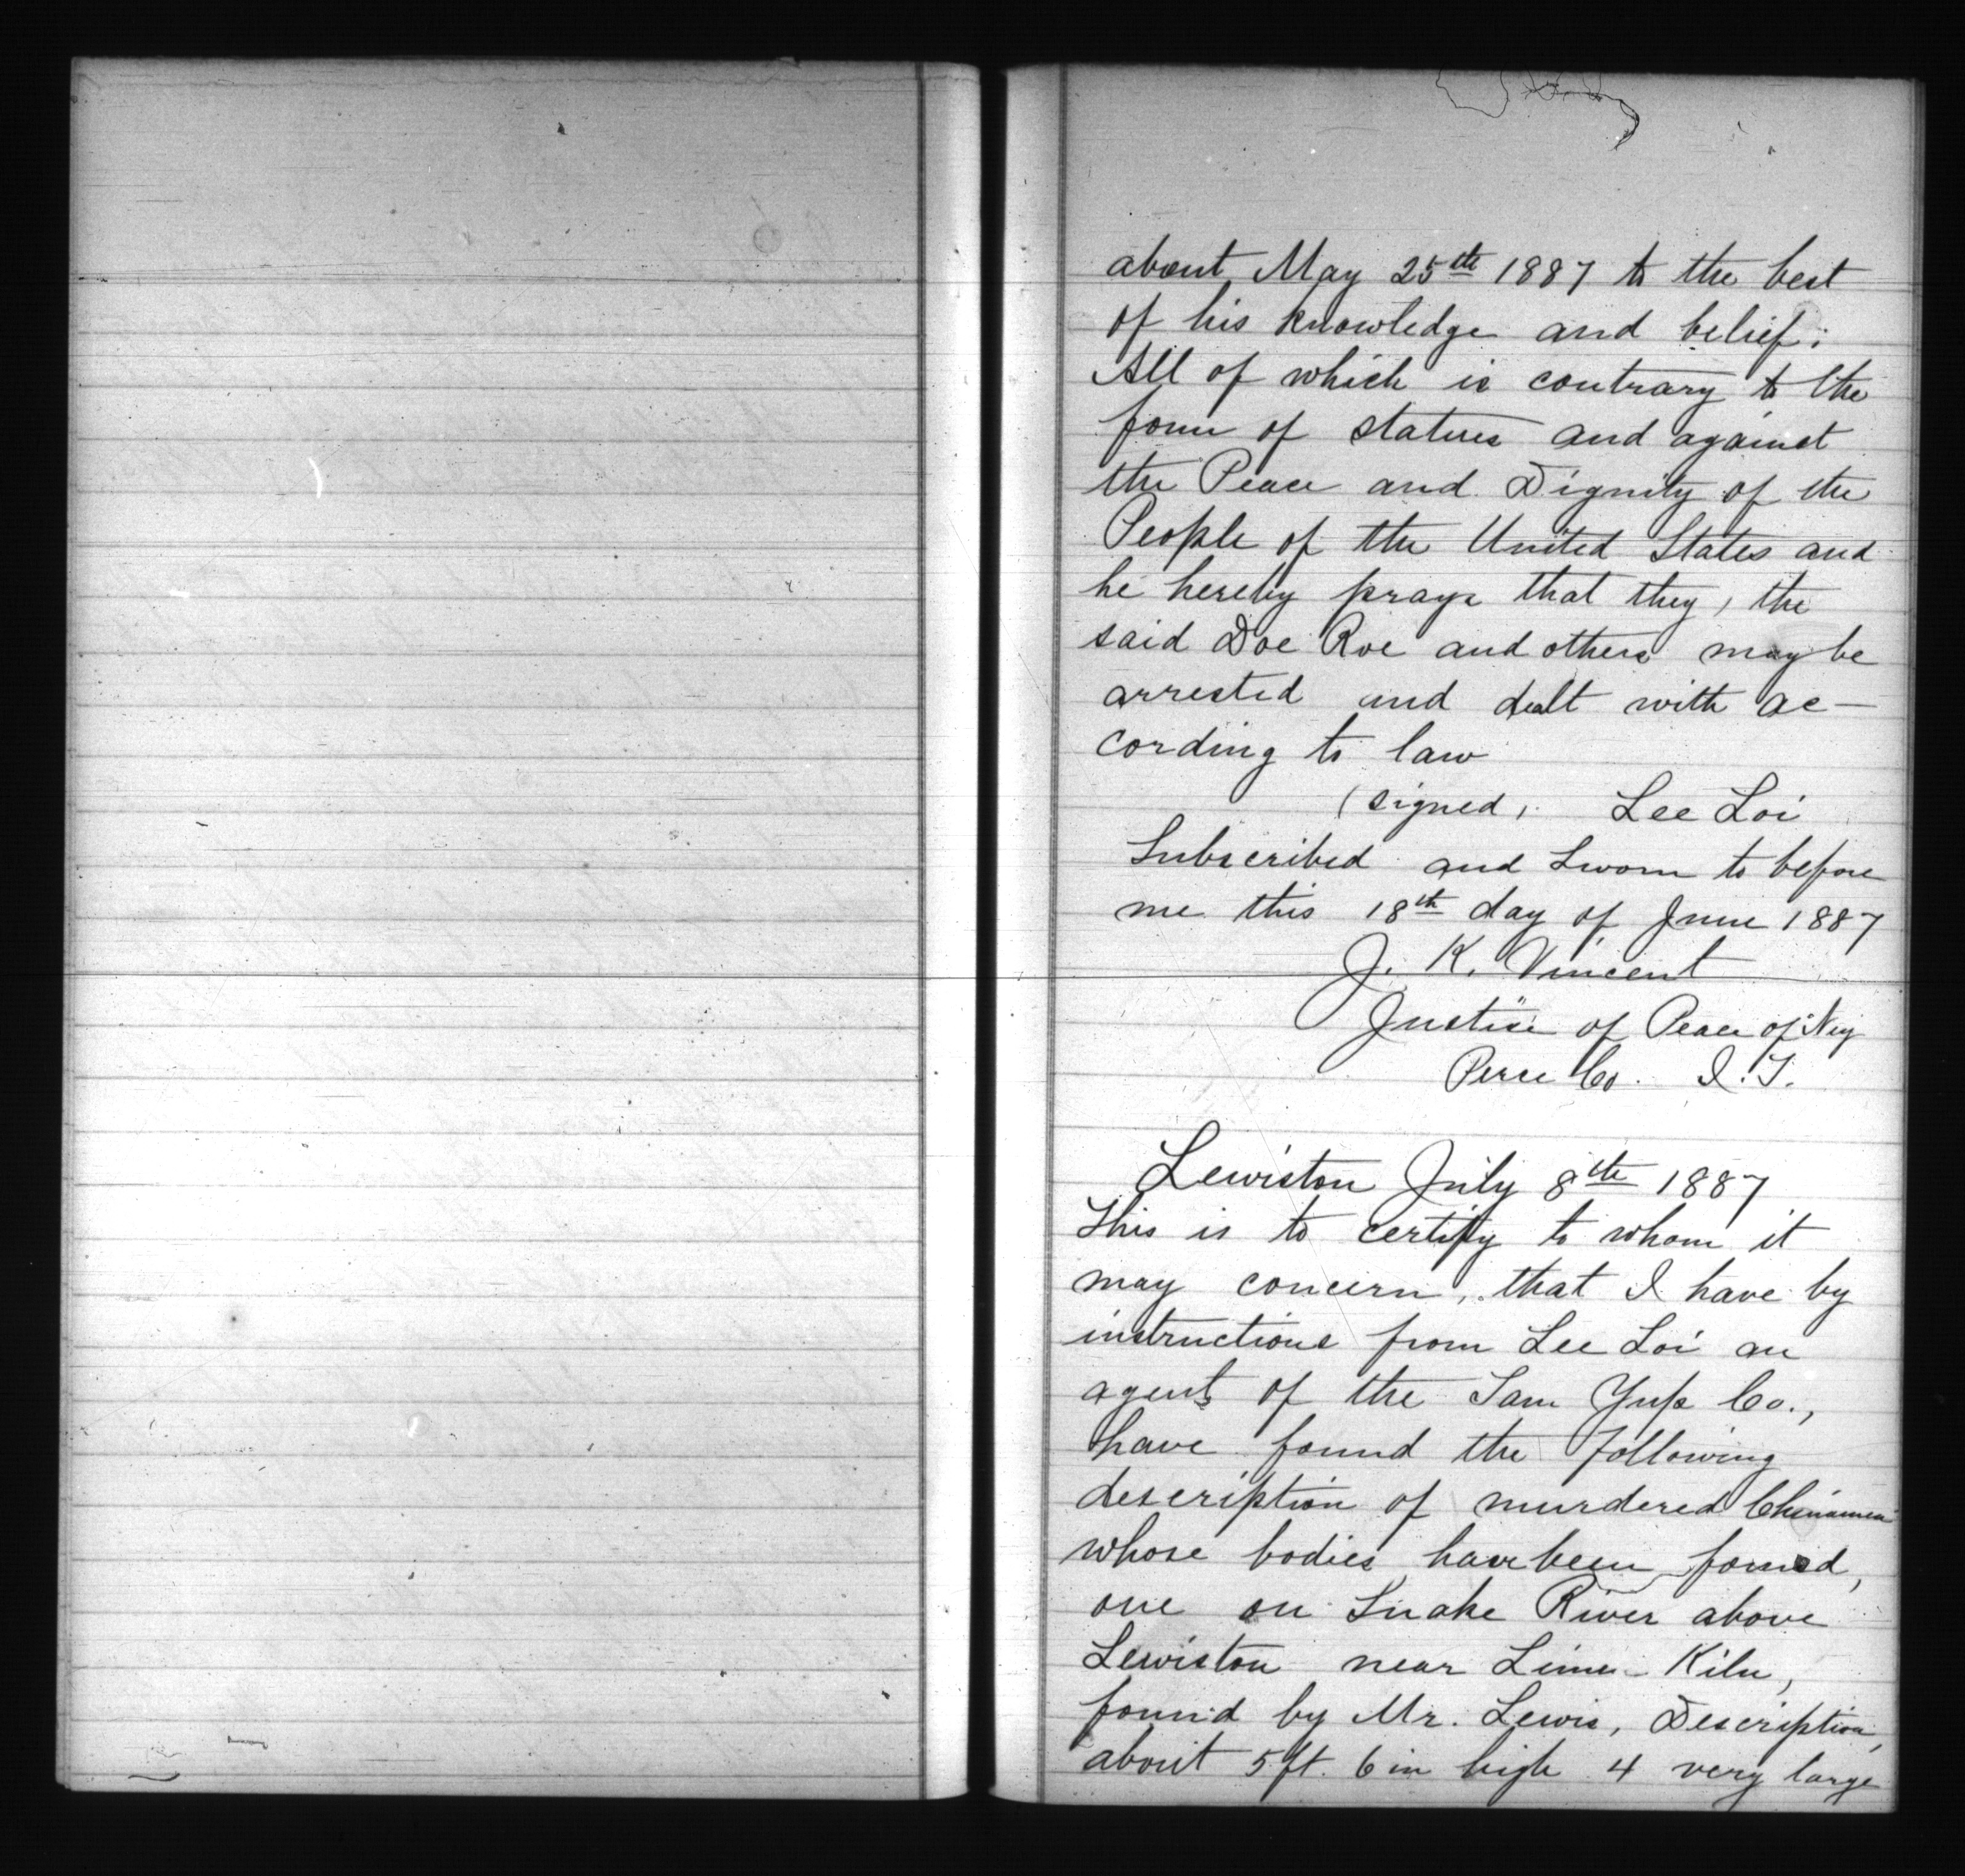 about May 25th 1887 to the best
of his knowledge and belief;
All of which is contrary to the
form of statues and against
the Peace and Dignity of the
People of the United States and
he hereby prays that they, the
said Doe Roe and others may be
arrested and dealt with ac-
cording to law
(signed) Lee Loi
Subscribed and Sworn to before
me this 18th day of June 1887
J. K. Vincent
Justice of Peace of Nez
Perce Co. I.T.
Lewiston July 8th 1887
This is to certify to whom it
may concern, that I have by
instructions from Lee Loi an
agent of the Sam Yup Co.,
have found the following
description of murdered Chinamen
whose bodies have been found,
one on Snake River above
Lewiston near Lime-Kiln,
found by Mr. Lewis, Description,
about 5 ft. 6 in high 4 very large